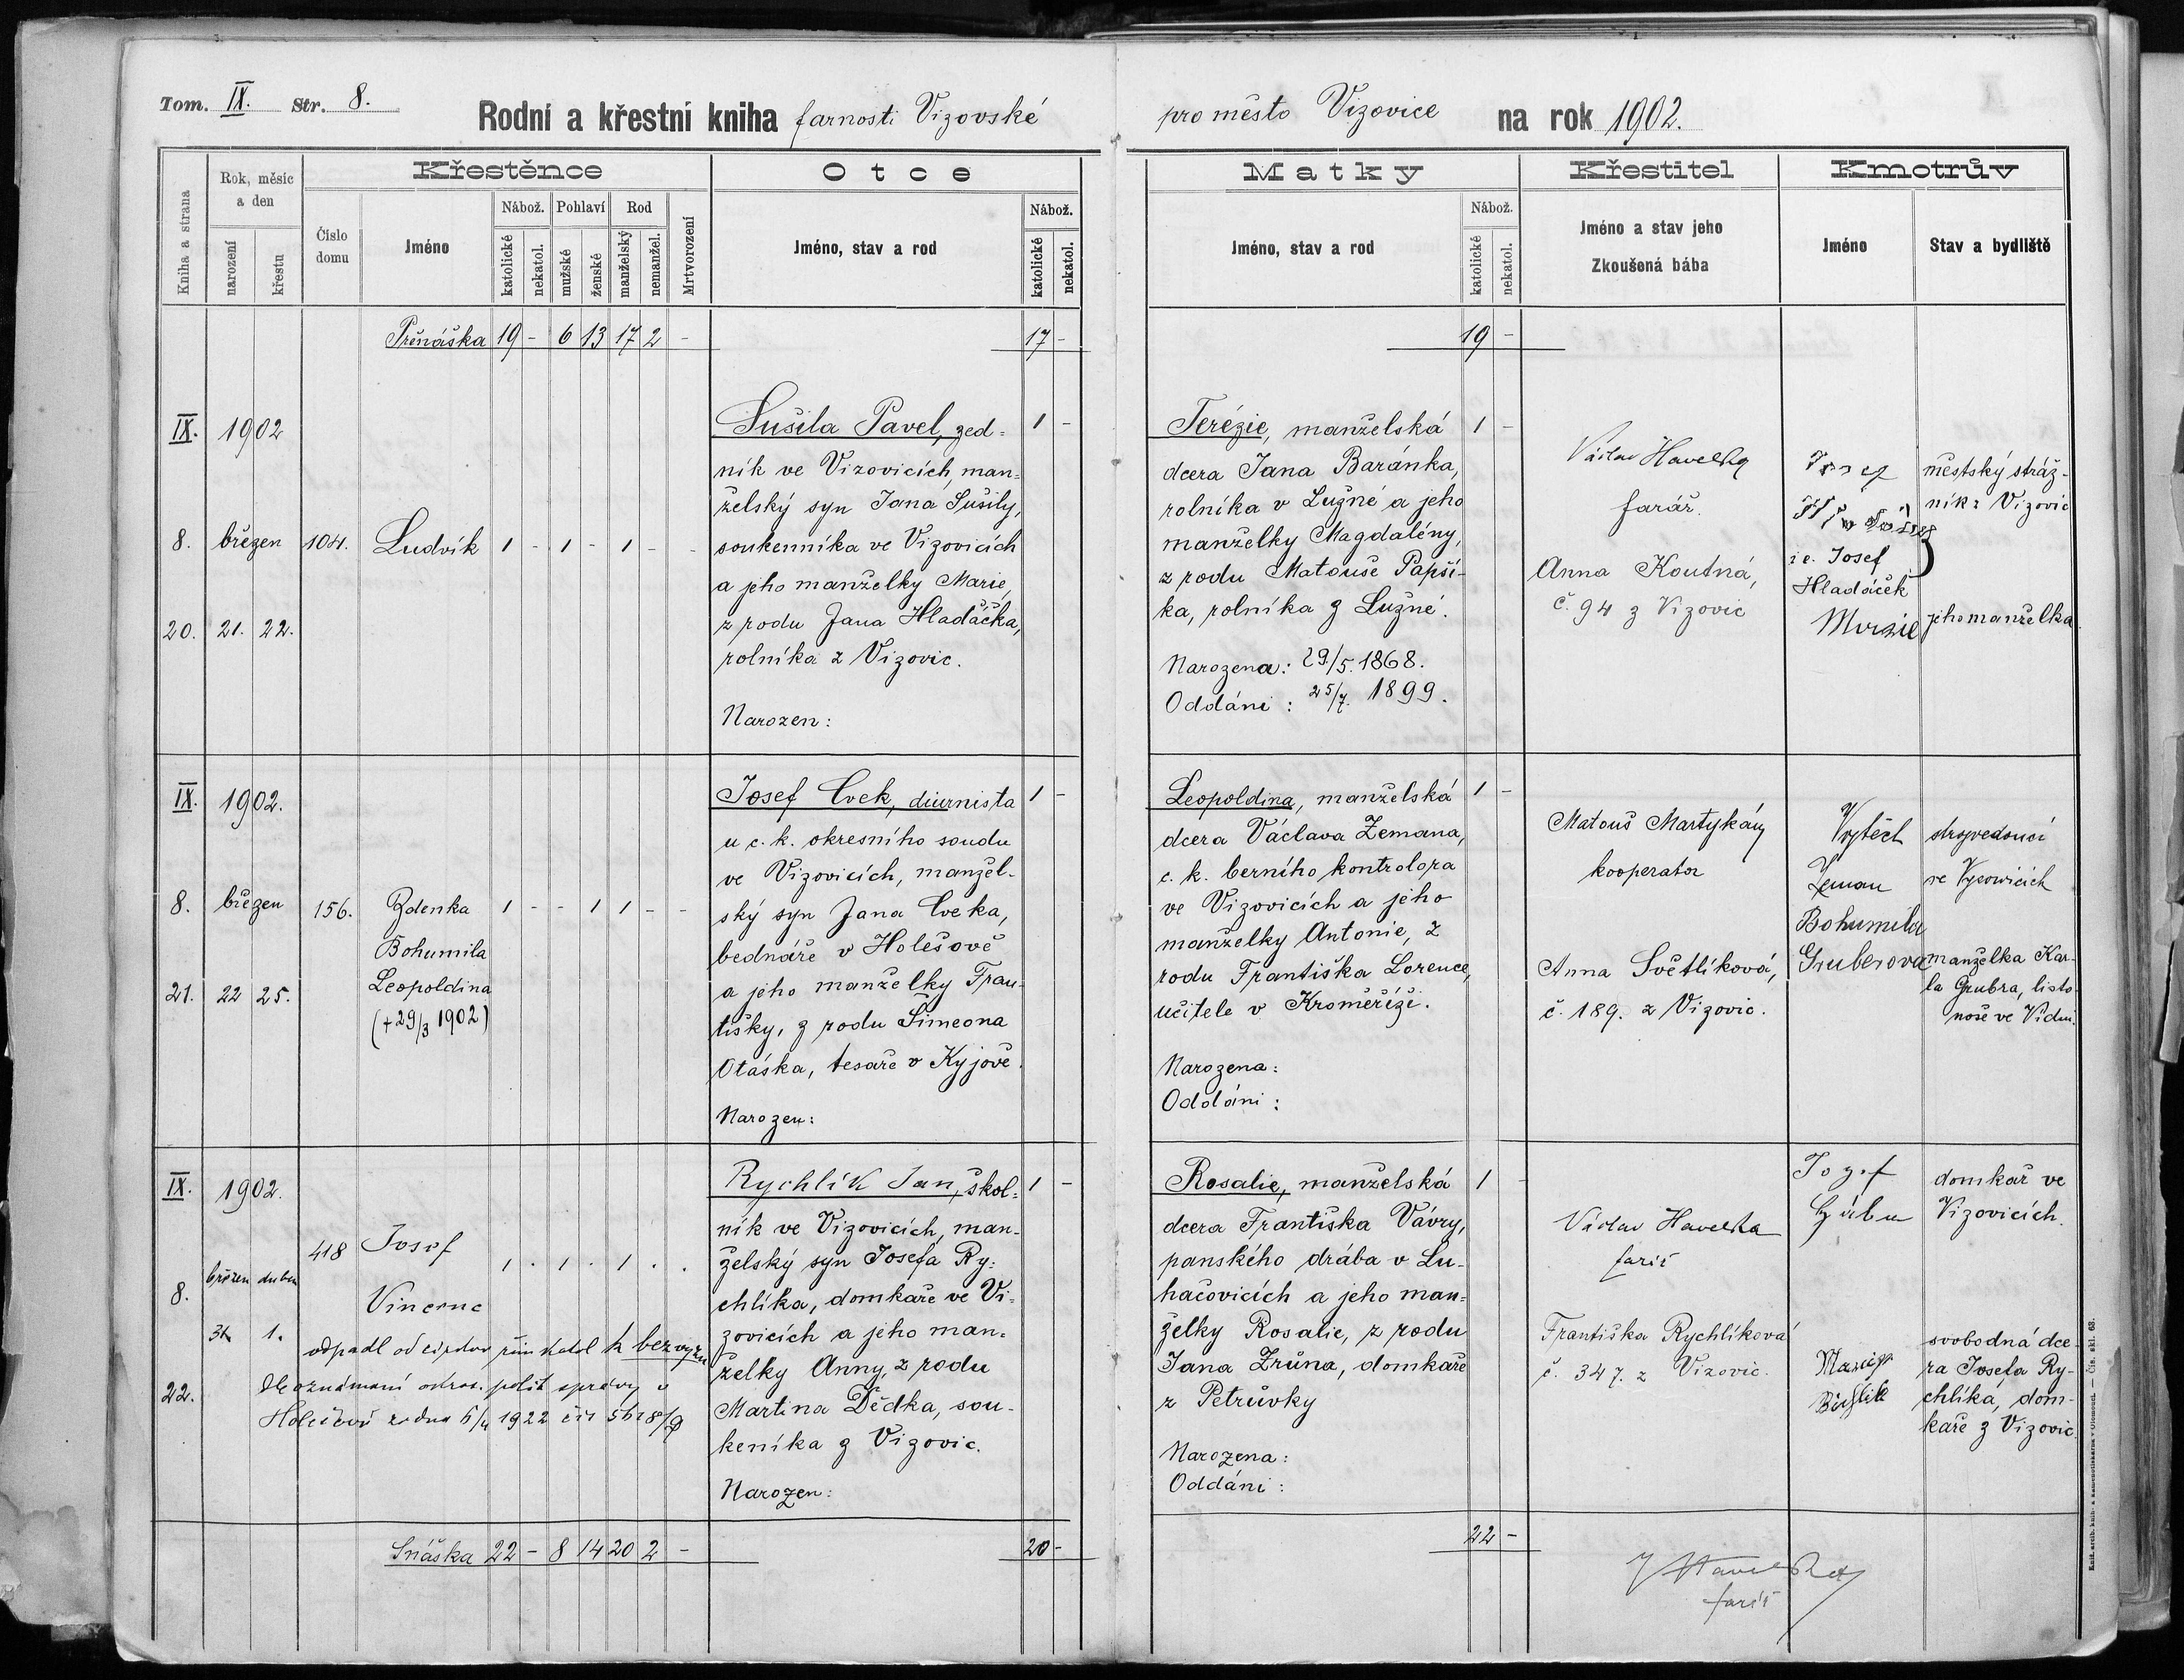 Tom. IX. Str. 8.
Rodní a křestní kniha farnosti Vizovské
pro město Vizovice na rok 1902.
Kniha a strana
Rok, měsíc a den
narození
křestu
Křestěnce
Číslo domu
Jméno
Nábož.
katolické
nekatol.
Pohlaví
mužské
ženské
Rod
manželský
nemanžel.
Mrtvorození
Otce
Jméno, stav a rod
Nábož.
katolické
nekatol.
Matky
Jméno, stav a rod
Nábož.
katolické
nekatol.
Křestitel
Jméno a stav jeho
Zkoušená bába
Kmotrův
Jméno
Stav a bydliště
Přenáška 19 - 6 13 17 2 - 17 - 19 -
IX. 1902
8. březen 104. Ludvík 1 - 1 - 1 - -
20. 21. 22.
Sušila Pavel, zed= 1 -
ník ve Vizovicích, man=
želský syn Jana Sušily,
soukenníka ve Vizovicích
a jeho manželky Marie,
z rodu Jana Hladáčka,
rolníka z Vizovic.
Narozen:
Terézie, manželská 1 -
dcera Jana Baránka,
rolníka v Lužné a jeho
manželky Magdalény,
z rodu Matouše Papší-
ka, rolníka z Lužné.
Narozena: 29/5. 1868.
Oddáni: 25/7. 1899.
Václav Havelka
farář.
Anna Koutná,
č. 94 z Vizovic
Josef
i.e. Josef
Hladáček
Marie
městský stráž-
ník z Vizovic
jeho manželka
IX. 1902.
8. březen 156. Zdenka 1 - - 1 1 - -
Bohumila
21. 22 25. Leopoldina
(+29/3 1902)
Josef Cvek, diurnista 1 -
u c. k. okresního soudu
ve Vizovicích, manžel-
ský syn Jana Cveka,
bednáře v Holešově
a jeho manželky Fran-
tišky, z rodu Šimeona
Otáska, tesaře v Kyjově.
Narozen:
Leopoldina, manželská 1 -
dcera Václava Zemana,
c. k. berního kontrolora
ve Vizovicích a jeho
manželky Antonie, z
rodu Františka Lorence,
učitele v Kroměříži.
Narozena:
Oddáni:
Matouš Martykán
kooperator
Anna Světlíková,
č. 189. z Vizovic.
Vojtěch
Zeman
Bohumila
Gruberova
strojvedoucí
ve Vyzowicích
manželka Kar-
la Grubra, listo-
noše ve Vídni.
IX. 1902.
418 Josef 1 . 1 . 1 . .
8. březen duben
Vincenc
31. 1.
odpadl od církve řím katol k bez vyzn
22. Dle oznámení okres. polit správy v
Holešově ze dne 6/4 1922 čís 5628/9
Rychlík Jan, škol= 1 -
ník ve Vizovicích, man-
želský syn Josefa Ry=
chlíka, domkaře ve Vi=
zovicích a jeho man=
želky Anny, z rodu
Martina Dědka, sou-
keníka z Vizovic.
Narozen:
Rosalie, manželská 1 -
dcera Františka Vávry,
panského drába v Lu-
hačovicích a jeho man=
želky Rosalie, z rodu
Jana Zrůna, domkaře
z Petrůvky
Narozena:
Oddáni:
Václav Havelka
farář
Františka Rychlíková
č. 347. z Vizovic.
Jozef
domkař ve
Vizovicích.
svobodná dce-
ra Josefa Ry-
chlíka, dom-
kaře z Vizovic.
Snáška 22 - 8 14 20 2 - 20 - 22 -
V Havelka
farář